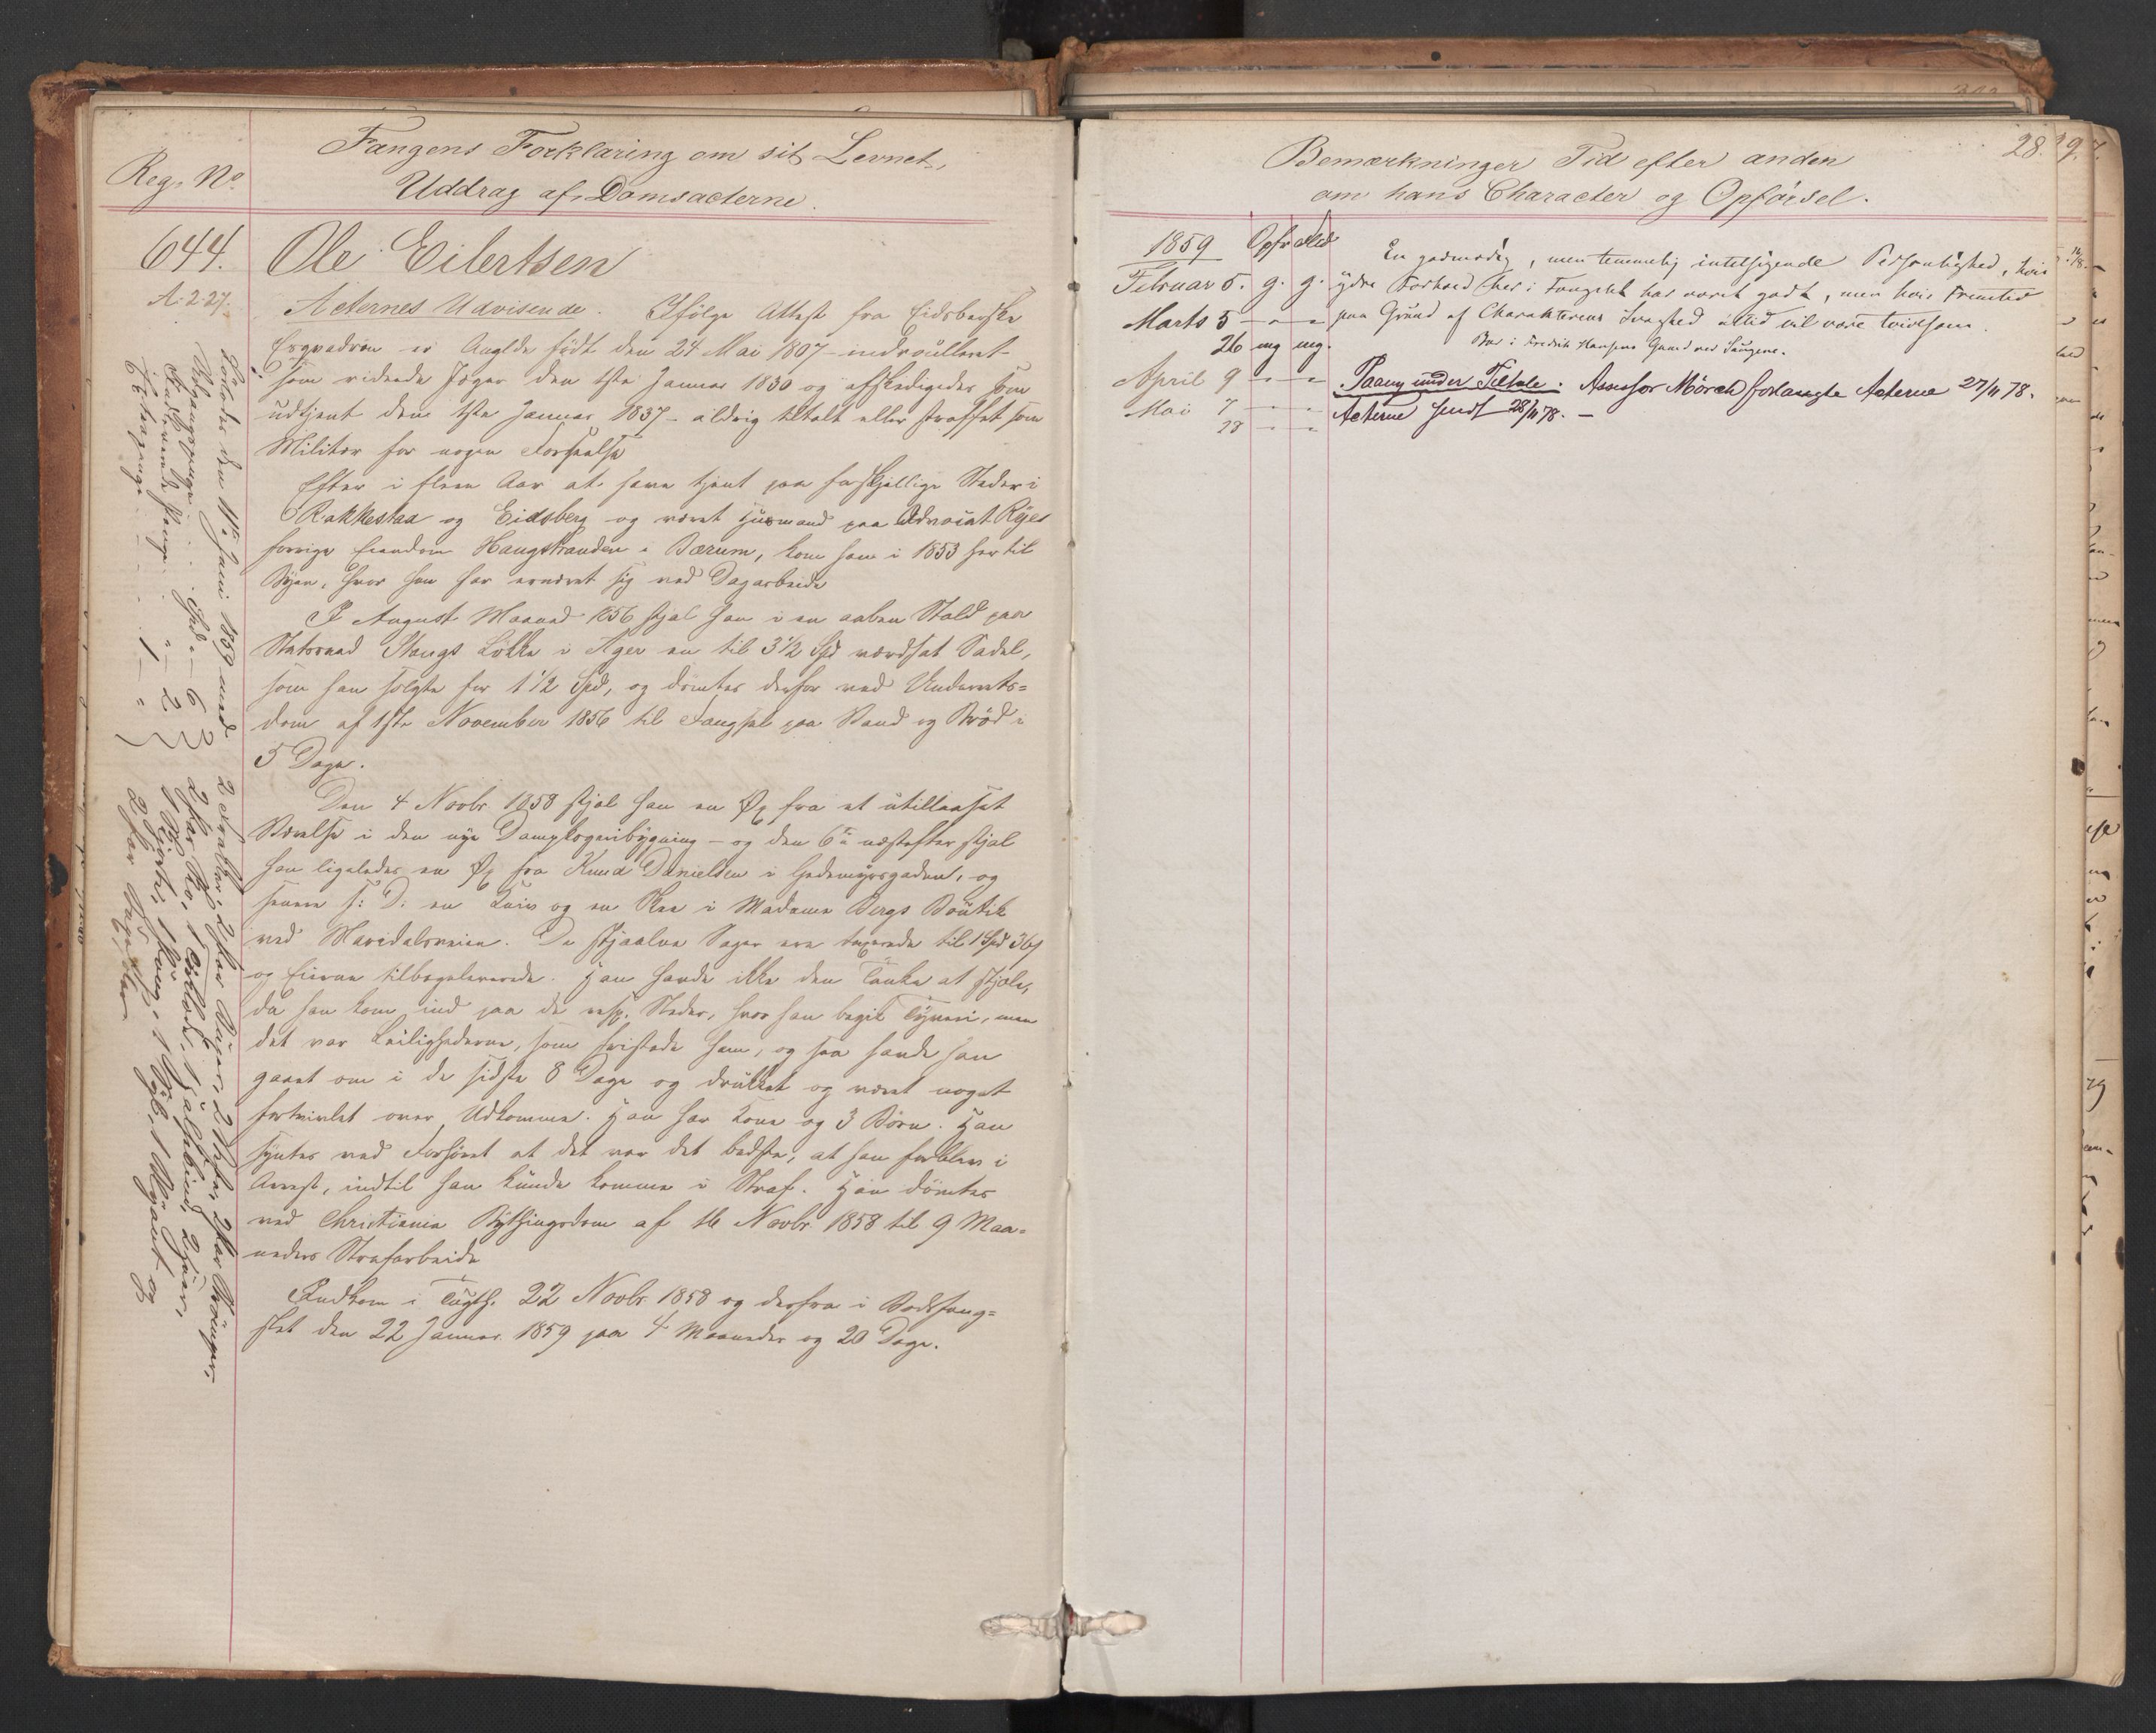 Fangens Forklaring om sit Levnet,
Reg. No.
Uddrag af Domsacterne.
644.
Ole Eilertsen
A. 227.
Acternes Udvisende. Ifølge Attest fra Eidsbergske
Esqvadron er Angldr født den 24 Mai 1807 – indroulleret
som ridende Jæger den 1ste Januar 1830 og afskedigedes som
udtjent den 1ste Januar 1837 – aldrig tiltalt eller straffet som
Militær for nogen Forseelse
Efter i fleere Aar at have tjent paa forskjellige Steder i
Rakkestad og Eidsberg og været Husmand paa Advocat Ryes
forrige Eiendom Haugstranden i Bærum, kom han i 1853 her til
Byen, hvor han har ernæret sig ved Dagarbeide
I August Maaned 1856 stjal han i en aaben Stald paa
Statsraad Stangs Løkke i Ager en til 3 1/2 Spd værdsat Sadel,
som han solgte for 1 1/2 Spd, og dømtes derfor ved Underrets=
dom af 1ste November 1856 til Fængsel paa Vand og Brød i
5 Dage.
Den 4 Novbr 1858 stjal han en Øx fra et utillaaset
Værelse i den nye Dampkogeribygning – og den 6te næstefter stjal
han ligeledes en Øx fra Knud Danielsen i Gedemyrsgaden, og
senere s: D: en Kniv og en Skee i Madame Bergs Boutik
ved Maridalsveien. De stjaalne Sager ere taxerede til 1 Spd 36 s
og Eierne tilbageleverede. Han havde ikke den Tanke at stjæle,
da han kom ind paa de resp. Steder, hvor han begik Tyveri, men
det var Leilighederne, som fristede ham, og saa havde han
gaaet om i de sidste 8 Dage og drukket og været noget
fortvivlet over Udkomme. Han har Kone og 3 Børn. Han
syntes ved Forhøret at det var det bedste, at han forblev i
Arrest, indtil han kunde komme i Straf. Han dømtes
ved Christiania Bythingsdom af 16 Novbr 1858 til 9 Maa=
neders Strafarbeide
Indkom i Tugth. 22 Novbr. 1858 og derfra i Bodsfæng=
slet den 22 Januar 1859 paa 4 Maaneder og 20 Dage.
Løslodes den 11te Juni 1859 med
2 2 Par Buxer, 2 Veste, 2 Par Strömper,
2 Par Sko, 1 2 Huer,
2 Skjorter, 1
2 Par
28.
Bemærkninger Tid efter anden
om hans Character og Opförsel.
1859 Opfr
Februar 5. g. g.
Marts 5 – " – "
26 mg mg.
April 9 – " – "
Mai 7 – " – "
28 – " – "
En godmodig, men temmelig intetsigende Personlighed, hvis
ydre Forhold her i Fængslet har været godt, men hvis Fremtid
paa Grund af Charakterens Svaghed altid vil være tvivlsom.
Bor i Fredrik Hansens Gaard ved Saugene.
Paany under Tiltale. Assessor Mörch forlangte Acterne 27/11 78.
Acterne sendt 28/11 78. –